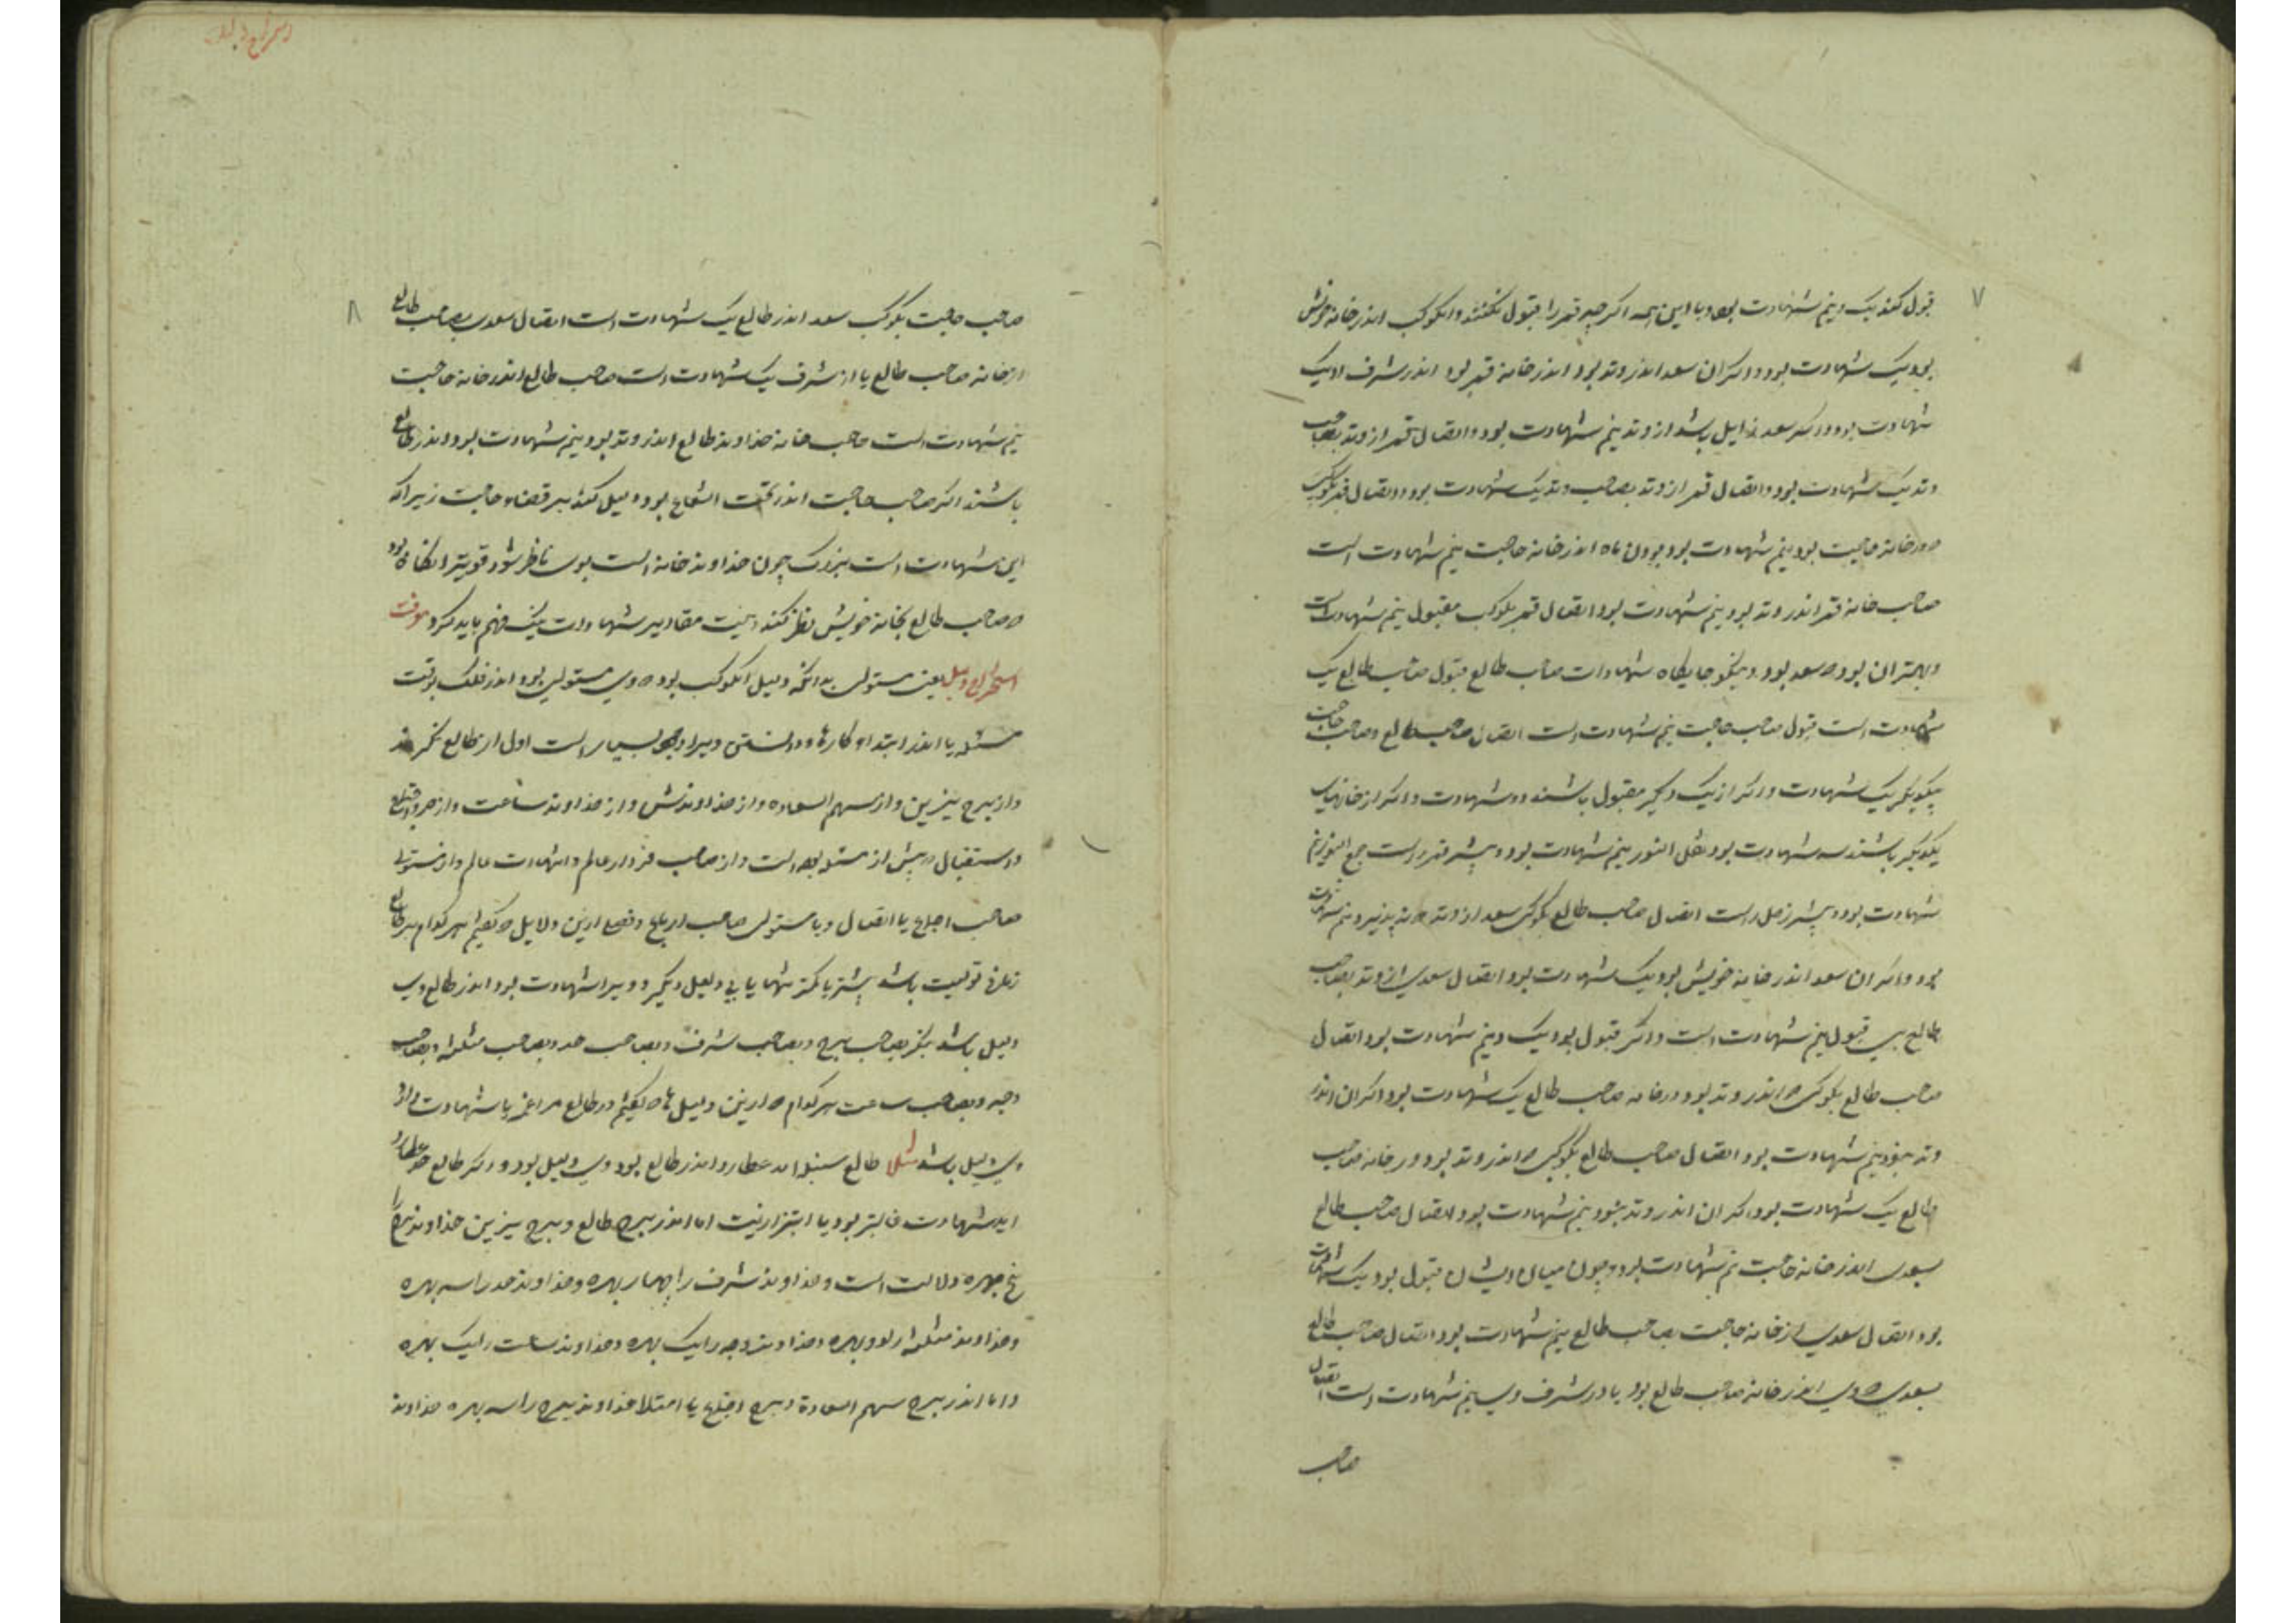 ۷
قبول کند یک و نیم شهادت بود و با این همه اکر چه قمر را قبول نکنند و انکوکب اندر خانه خویش
بود یک شهادت بود و اکر ان سعد اندر وتد بود اندر خانه قمر بود اندر شرف او یک
شهادت بود و اکر سعد زایل باشد از وتد نیم شهادت بود و اتصال قمر از وتد بصاحب
وتد یک شهادت بود و اتصال قمر از وتد بصاحب وتد یک شهادت بود و اتصال قمر بکوکب
در خانه حاجت بود نیم شهادت بود و بودن ماه اندر خانه حاجت نیم شهادت است
صاحب خانه قمر اندر وتد بود نیم شهادت بود اتصال قمر بکوکب مقبول نیم شهادت است
و بهتر ان بود که سعد بود و نیکو جایکاه شهادات صاحب طالع قبول صاحب طالع یک
شهادت است قبول صاحب حاجت نیم شهادت است اتصال صاحب طالع و صاحب حاجت
بیکدیکر یک شهادت و اکر از یک دیکر مقبول باشند دو شهادت و اکر از خانهای
یکدیکر باشند سه شهادت بود نقل النور نیم شهادت بود و بیشتر قمر راست جمع النور نیم
شهادت بود و بیشتر زحل راست اتصال صاحب طالع بکوکبی سعد از وتد که بپذیرد نیم شهادت
بود و اکر ان سعد اندر خانه خویش بود یک شهادت بود اتصال سعدی از وتد بصاحب
طالع بی قبول نیم شهادت است و اکر قبول بود یک و نیم شهادت بود اتصال
صاحب طالع بکوکبی که اندر وتد بود و در خانه صاحب طالع یک شهادت بود اکر ان اندر
وتد نبود نیم شهادت بود اتصال صاحب طالع بکوکبی که اندر وتد بود و در خانه صاحب
طالع یک شهادت بود اکر ان اندر وتد نبود نیم شهادت بود اتصال صاحب طالع
بسعدی اندر خانه حاجت نیم شهادت بود و چون میان ایشان قبول بود یک شهادت
بود اتصال سعدی از خانه حاجت بصاحب طالع نیم شهادت بود اتصال صاحب طالع
بسعدی که وی اندر خانه صاحب طالع بود یا در شرف وی نیم شهادت است اتصال
صاحب
استخراج دلیل
۸
صاحب حاجت بکوکب سعد اندر طالع یک شهادت است اتصال سعدی بصاحب طالع
از خانه صاحب طالع یا از شرف یک شهادت است صاحب طالع اندر خانه حاجت
نیم شهادت است صاحب خانه خداوند طالع اندر وتد بود نیم شهادت بود و اندر طالع
باشند اکر صاحب حاجت اندر تحت الشعاع بود دلیل کند بر قضاء حاجت زیرا که
این شهادت است بزرک چون خداوند خانه است بوی ناظر شود قویتر انکاه بود
که صاحب طالع بخانه خویش نظر کند اینست مقادیر شهادات نیک فهم باید کرد معرفت
استخراج دلیل یعنی مستولی بدانکه دلیل انکوکب بود که وی مستولی بود اندر فلک بوقت
مسئله یا اندر ابتداء کارها و دانستن ویرا وجوه بسیار است اول از طالع نکرند
و از برج نیرین و از سهم السعاده و از خداوندش و از خداوند ساعت و از جزو اجتماع
و استقبال که پیش از مسئله بوده است و از صاحب دور عالم و انتهاءات عالم و از مستولی
صاحب اجتماع یا اتصال و یا مستولی صاحب ارباع و فصل ازین دلایل که کفتیم هر کدام بر طالع
باشد بیشتر یا کمتر دلیل دیکر و ویرا شهادت بود اندر طالع وی
دلیل باشد بنکر بصاحب برج و بصاحب شرف و بصاحب حد و بصاحب مثلثه و بصاحب
وجه و بصاحب ساعت هر کدام که ازین دلیل ها که کفتیم در طالع مزاعم باشهادت
وی دلیل باشد مثلا طالع سنبله امد عطارد اندر طالع بود وی دلیل بود و اکر طالع عطارد
اید شهادت غالبتر بود یا ابتزازیت اما اندر برج طالع و برج نیرین خداوند برج را
پنج بهره دلالت است و خداوند شرف را چهار بهره و خداوند حد را سه بهره
و خداوند مثلثه را دو بهره و خداوند وجه را یک بهره و خداوند ساعت را یک بهره
و اما اندر برج سهم السعادة و برج اجتماع یا امتلا خداوند برج را سه بهره خداوند